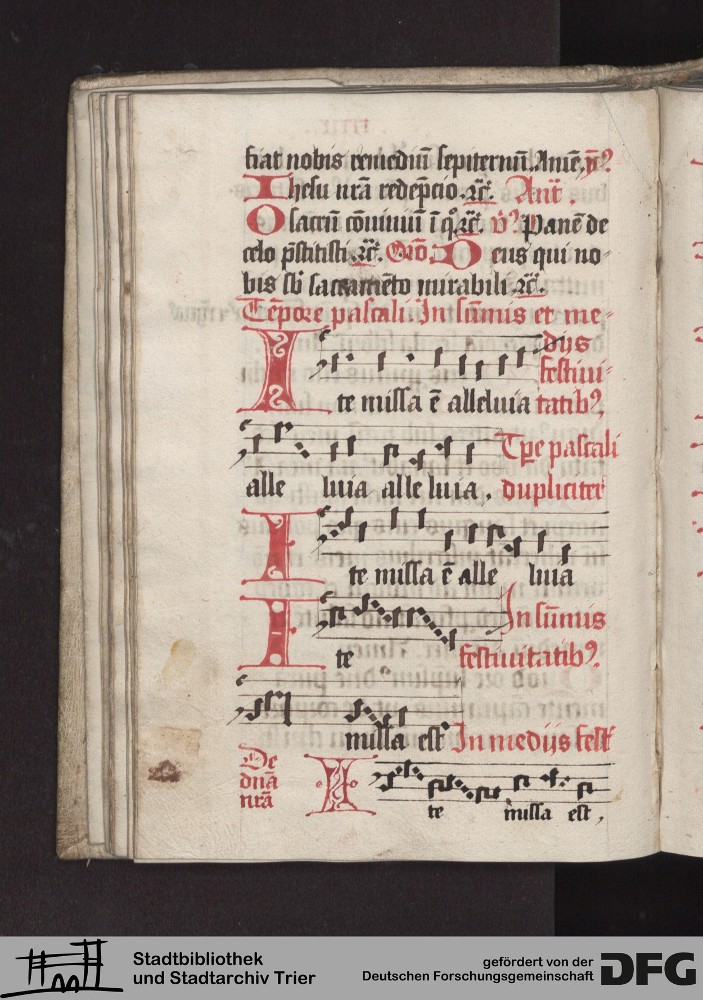 fiat nobis remediū sepiternū. Amē. v̄ꝰ
Ihesu nr̄a redēpcio. ꝛc̄. Ant̄.
O sacrū cōuiuiū ī qͦ ꝛc̄. v̄ꝰ Panē de
celo p̄stitisti ꝛc̄. Orō. Deus qui no-
bis sb̄ sacramēto mirabili ꝛc̄.
Tēpore pascali In sūmis et me-
dijs
festiui-
Ite missa ē alleluia tatibꝰ
Tp̄e pascali
alle luia alle luia, dupliciter
Ite missa ē alle luia
In sūmis
Ite festiuitatibꝰ.
missa est In medijs fest
De
dn̄a
nr̄a
Ite missa est,
Stadtbibliothek
und Stadtarchiv Trier
gefördert von der
Deutschen Forschungsgemeinschaft
DFG